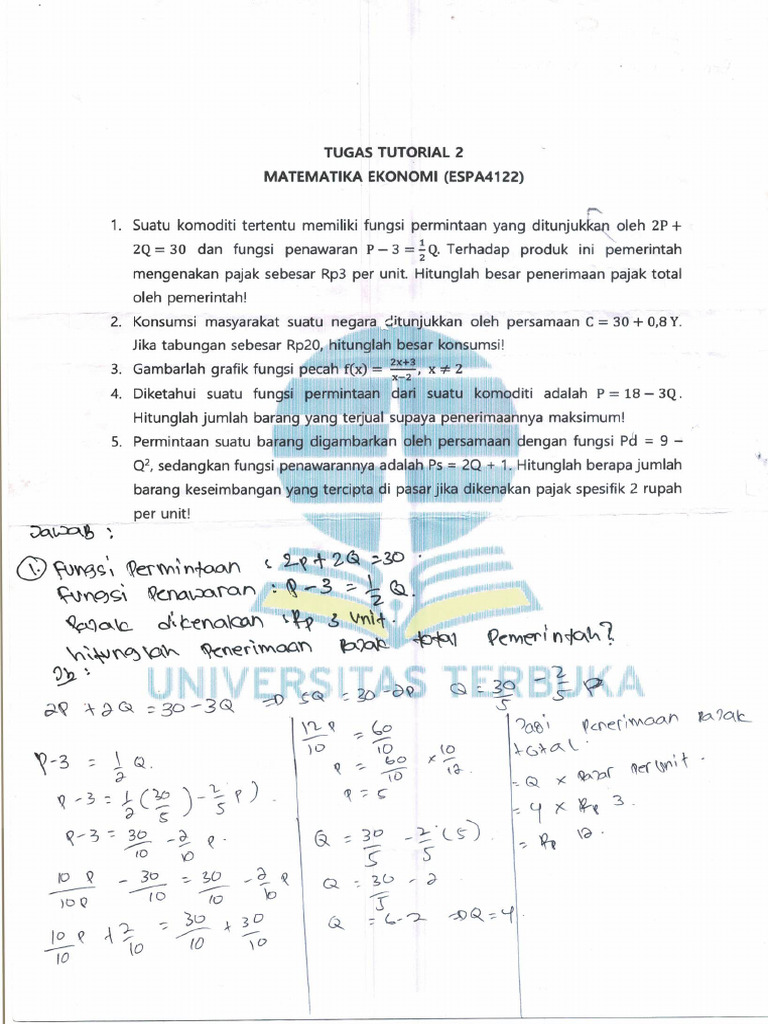 TUGAS TUTORIAL 2
MATEMATIKA EKONOMI (ESPA4122)
1. Suatu komoditi tertentu memiliki fungsi permintaan yang ditunjukkan oleh 2P +
2Q = 30 dan fungsi penawaran P − 3 = 1/2 Q. Terhadap produk ini pemerintah
mengenakan pajak sebesar Rp3 per unit. Hitunglah besar penerimaan pajak total
oleh pemerintah!
2. Konsumsi masyarakat suatu negara ditunjukkan oleh persamaan C = 30 + 0,8 Y.
Jika tabungan sebesar Rp20, hitunglah besar konsumsi!
3. Gambarlah grafik fungsi pecah f(x) = (2x+3)/(x−2), x ≠ 2
4. Diketahui suatu fungsi permintaan dari suatu komoditi adalah P = 18 − 3Q.
Hitunglah jumlah barang yang terjual supaya penerimaannya maksimum!
5. Permintaan suatu barang digambarkan oleh persamaan dengan fungsi Pd = 9 –
Q², sedangkan fungsi penawarannya adalah Ps = 2Q + 1. Hitunglah berapa jumlah
barang keseimbangan yang tercipta di pasar jika dikenakan pajak spesifik 2 rupah
per unit!
Jawab :
1. Fungsi Permintaan : 2P + 2Q = 30.
Fungsi Penawaran : P − 3 = 1/2 Q.
Pajak dikenakan : Rp 3 unit.
hitunglah Penerimaan Pajak total Pemerintah?
Jb :
UNIVERSITAS TERBUKA
2P + 2Q = 30 − 3Q ⇒ 5Q = 30 − 2P Q = 30/5 − 2/5 P
P − 3 = 1/2 Q.
P − 3 = 1/2 (30/5) − 2/5 P)
P − 3 = 30/10 − 2/10 P.
10 P/10P − 30/10 = 30/10 − 2/10 P
10/10 P + 2/10 = 30/10 + 30/10
12 P/10 = 60/10
P = 60/10 × 10/12
P = 5
Q = 30/5 − 2/5 (5)
Q = 30/5 − 2
Q = 6 − 2 ⇒ Q = 4
Jadi Penerimaan Pajak
total.
= Q × Pajak Per Unit.
= 4 × Rp 3.
= Rp 12.